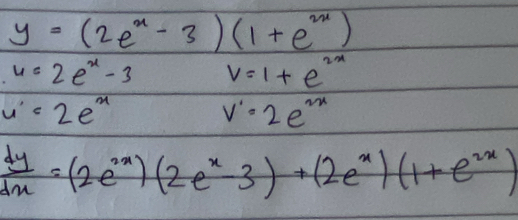 y = (2eˣ - 3)(1 + e²ˣ)
u = 2eˣ - 3 V = 1 + e²ˣ
u' = 2eˣ V' = 2e²ˣ
dy/dx = (2e²ˣ)(2eˣ - 3) + (2eˣ)(1 + e²ˣ)